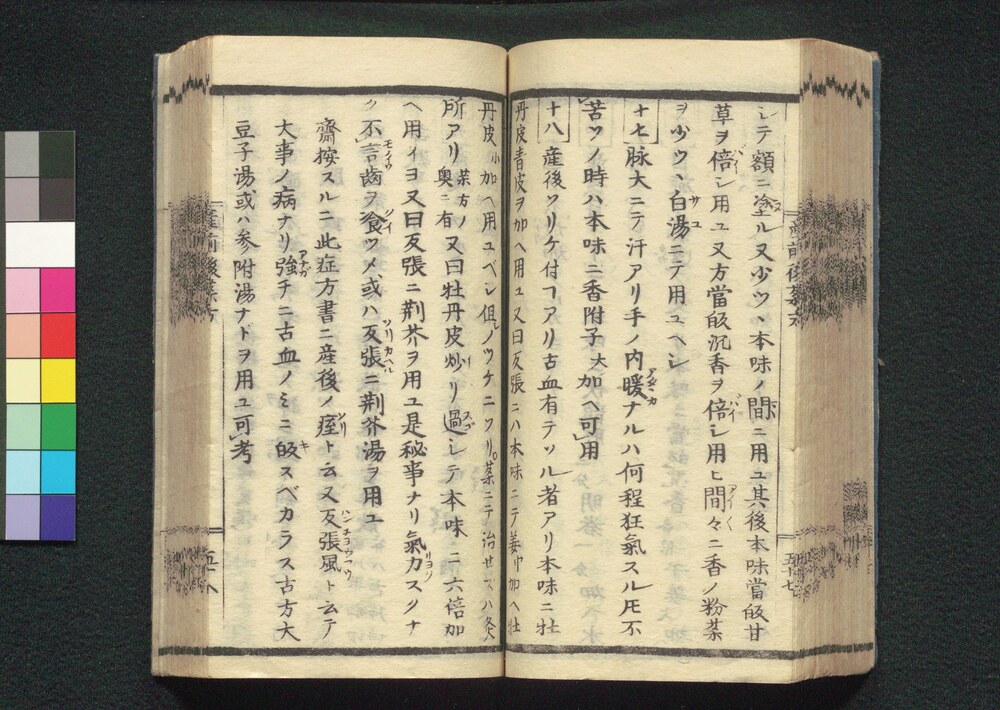 シテ額ニ塗ル又少ツヽ本味ノ間ニ用ユ其後本味當皈甘
草ヲ倍シ用ユ又方當皈沉香ヲ倍シ用ヒ間々ニ香ノ粉茶
ヲ少ツヽ白湯ニテ用ユヘシ
十七 脉大ニテ汗アリ手ノ内暖ナルハ何程狂氣スル𪜈不
苦ツノ時ハ本味ニ香附子大加ヘ可用
十八 産後ツリケ付ヿアリ古血有テツル者アリ本味ニ牡
丹皮青皮ヲ加ヘ用ユ又曰反張ニハ本味ニテ姜中加ヘ牡
丹皮小加ヘ用ユベシ但シノツケニツリ茶ニテ治セズハ灸
所アリ茶方ノ奥ニ有又曰牡丹皮炒リ過シテ本味ニ六倍加
ヘ用イヨ又曰反張ニ荆芥ヲ用ユ是秘事ナリ氣力スクナ
ク不言齒ヲ飡ツメ或ハ反張ニ荆芥湯ヲ用ユ
齋按スルニ此症方書ニ産後ノ痙ト云又反張風ト云テ
大事ノ病ナリ強チニ古血ノミニ皈スベカラス古方大
豆子湯或ハ参附湯ナドヲ用ユ可考
産前後茶方
五十七
産前後茶方
五十八